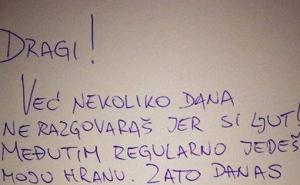 DRAGI!
VEĆ NEKOLIKO DANA
NE RAZGOVARAŠ JER SI LJUT!
MEĐUTIM REGULARNO JEDEŠ
MOJU HRANU. ZATO DANAS